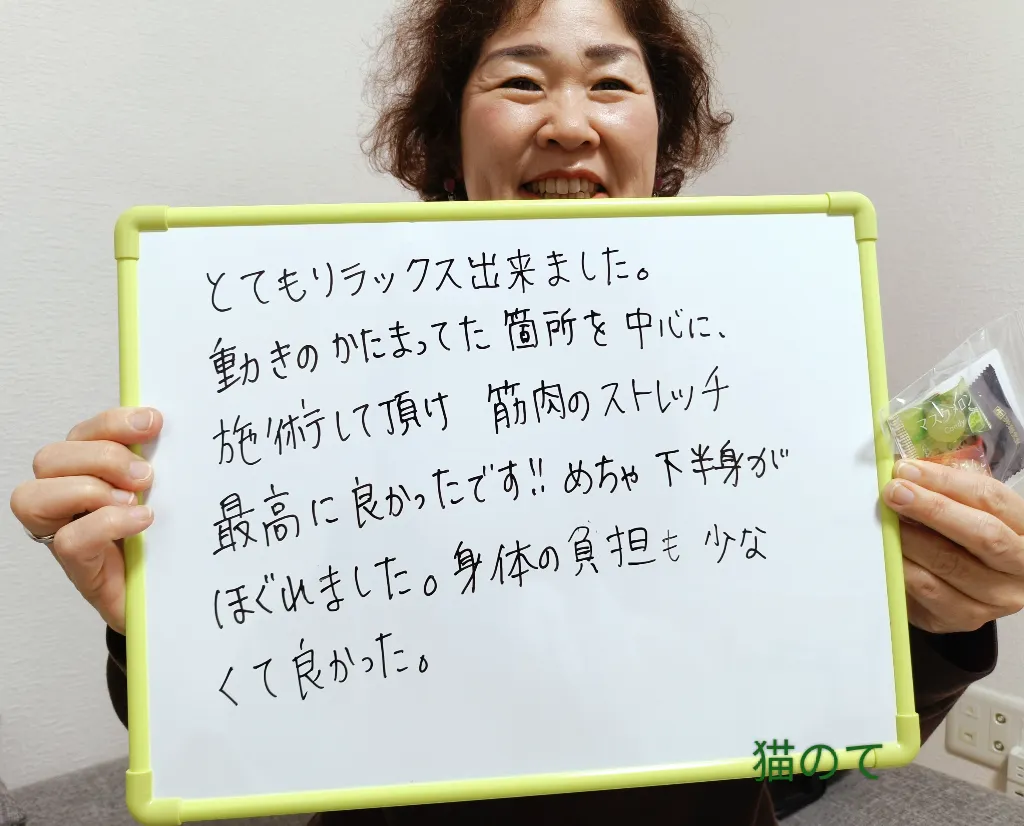 とてもリラックス出来ました。
動きのかたまってた箇所を中心に、
施術して頂け 筋肉のストレッチ
最高に良かったです!!めちゃ下半身が
ほぐれました。身体の負担も少な
くて良かった。
猫のて